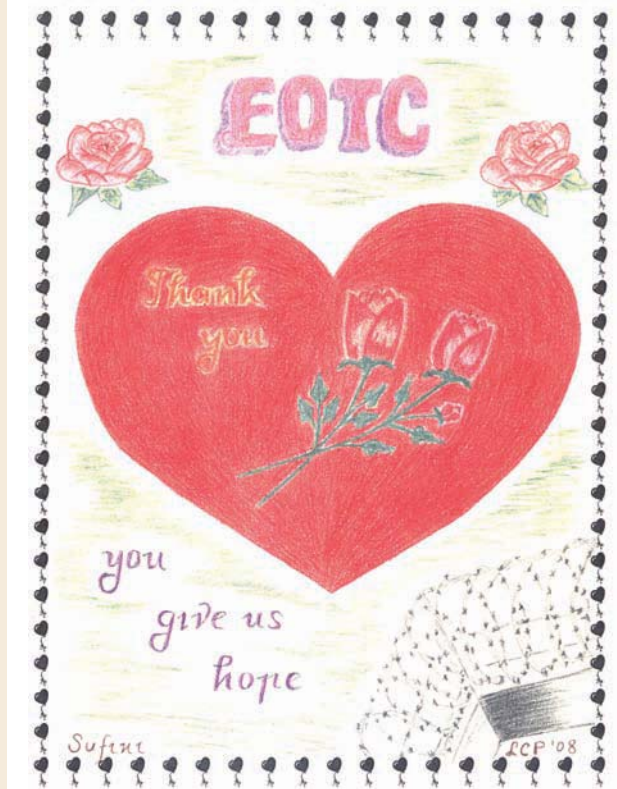 EOTC
Thank
you
you
give us
hope
Sufini
LCP '08